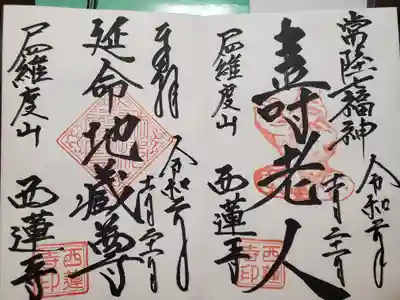 常陸七福神
令和六年
十一月二十二日
寿老人
尸羅度山
西蓮寺
西蓮
寺印
奉拝
令和六年
十一月二十二日
延命地蔵尊
尸羅度山
西蓮寺
西蓮
寺印